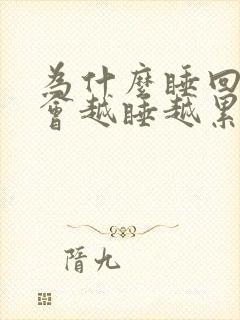 為什麼睡回
會越睡越累
隋九